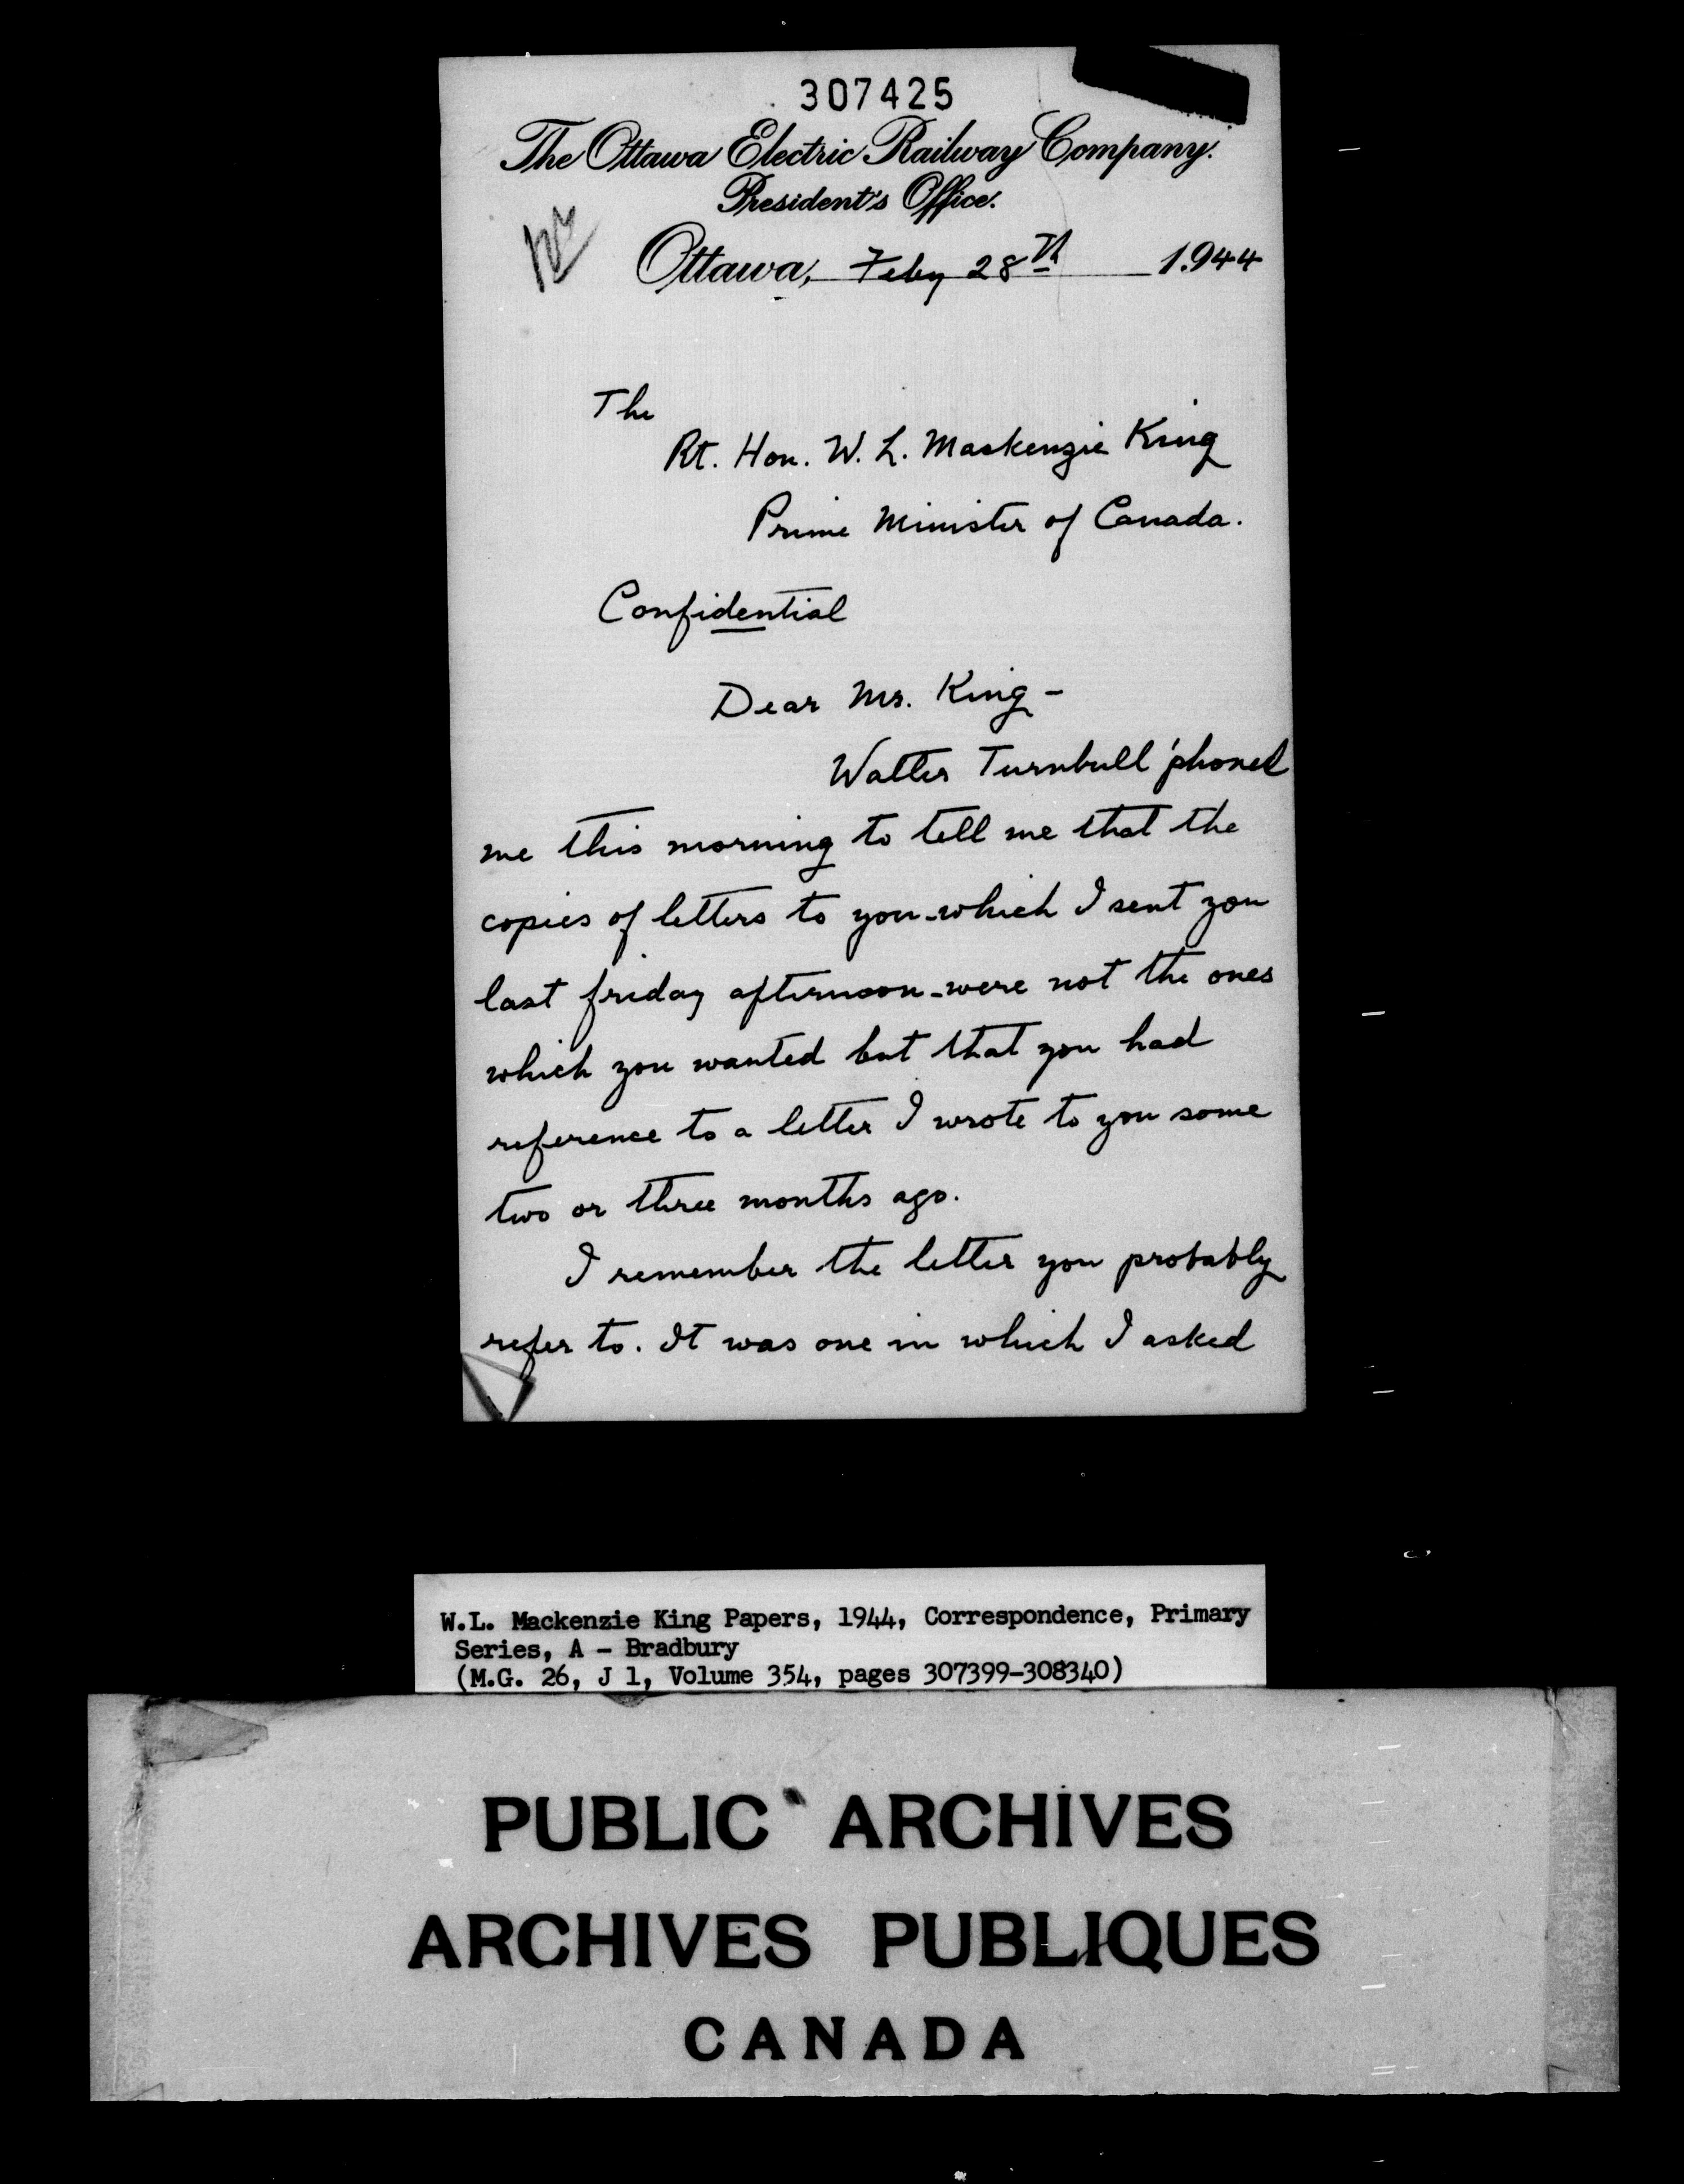 307425
The Ottawa Electric Railway Company.
President's Office.
Ottawa, Feby 28th 1944
The
Rt. Hon. W. L. Mackenzie King
Prime Minister of Canada.
Confidential
Dear Mr. King -
Walter Turnbull 'phoned
me this morning to tell me that the
copies of letters to you - which I sent you
last friday afternoon - were not the ones
which you wanted but that you had
reference to a letter I wrote to you some
two or three months ago.
I remember the letter you probably
refer to. It was one in which I asked
W.L. Mackenzie King Papers, 1944, Correspondence, Primary
Series, A - Bradbury
(M.G. 26, J 1, Volume 354, pages 307399-308340)
PUBLIC ARCHIVES
ARCHIVES PUBLIQUES
CANADA